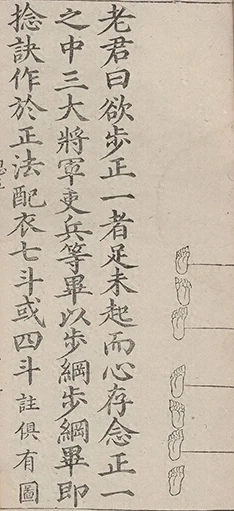 老君曰欲步正一者足未起而心存念正一
之中三大將軍吏兵等畢以步綱步綱畢即
捻訣作於正法配衣七斗或四斗註俱有圖